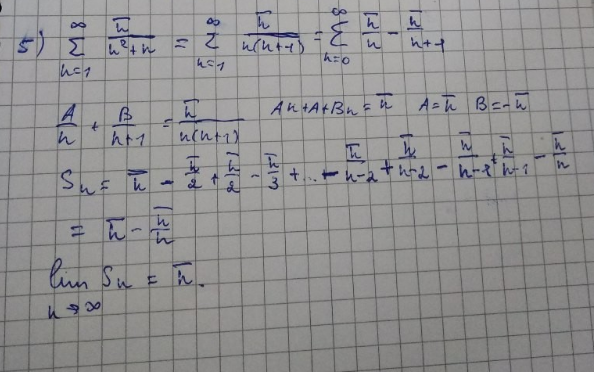 5) ∑_{n=1}^{∞} n̅/(n²+n) = ∑_{n=1}^{∞} n̅/(n(n+1)) = ∑_{n=0}^{∞} n̅/n − n̅/(n+1)
A/n + B/(n+1) = n̅/(n(n+1)) An+A+Bn = n̅ A=n̅ B=−n̅
Sₙ = n̅ − n̅/2 + n̅/2 − n̅/3 + ... − n̅/(n−2) + n̅/(n−2) − n̅/(n−1) + n̅/(n−1) − n̅/n
= n̅ − n̅/n
lim Sₙ = n̅.
n→∞